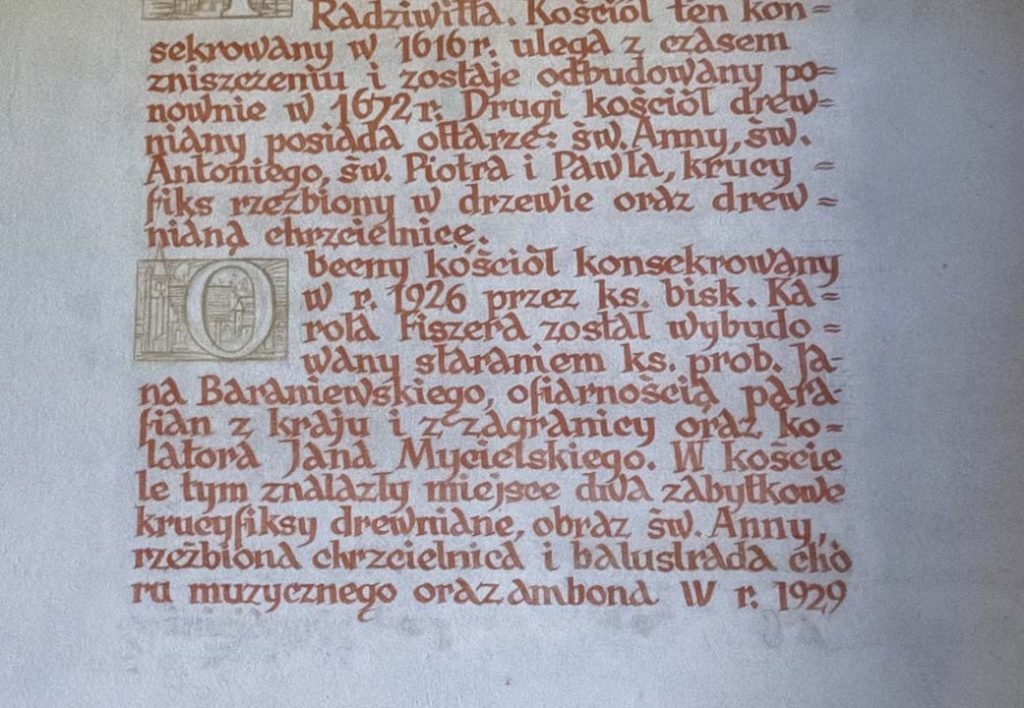 Radziwiłła. Kościół ten kon=
sekrowany w 1616 r. ulega z czasem
zniszczeniu i zostaje odbudowany po=
nownie w 1672 r. Drugi kościół drew=
niany posiada ołtarze: św. Anny, św.
Antoniego, św. Piotra i Pawła, krucy=
fiks rzeźbiony w drzewie oraz drew=
nianą chrzcielnicę.
Obecny kościół konsekrowany
w r. 1926 przez ks. bisk. Ka=
rola Fiszera został wybudo=
wany staraniem ks. prob. Ja-
na Baraniewskiego, ofiarnością para-
fian z kraju i z zagranicy oraz ko=
latora Jana Mycielskiego. W koście
le tym znalazły miejsce dwa zabytkowe
krucyfiksy drewniane, obraz św. Anny,
rzeźbiona chrzcielnica i balustrada chó
ru muzycznego oraz ambona W r. 1929